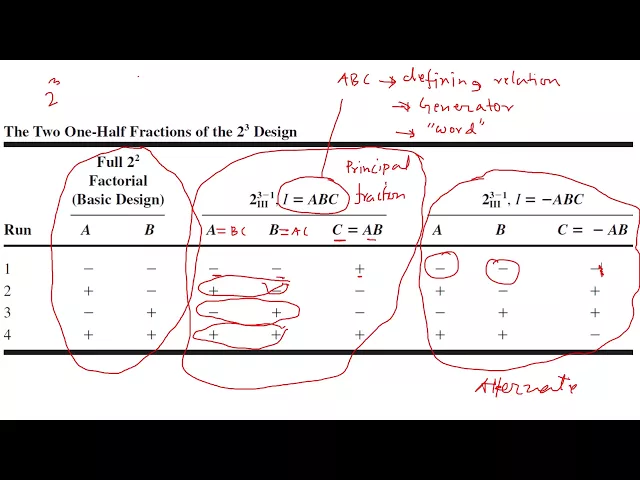 2³
ABC → defining relation
→ Generator
→ "word"
The Two One-Half Fractions of the 2³ Design
Full 2²
Factorial
(Basic Design)
Principal
fraction
2 3−1 III, I = ABC
2 3−1 III, I = −ABC
Run A B A = BC B = AC C = AB A B C = − AB
1 − − − − + − − −
2 + − + − − + − +
3 − + − + − − + +
4 + + + + + + + −
Alternate